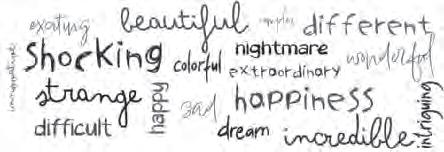 exciting beautiful complex different
shocking colorful nightmare wonderful
extraordinary
strange happy sad happiness intriguing
difficult dream incredible